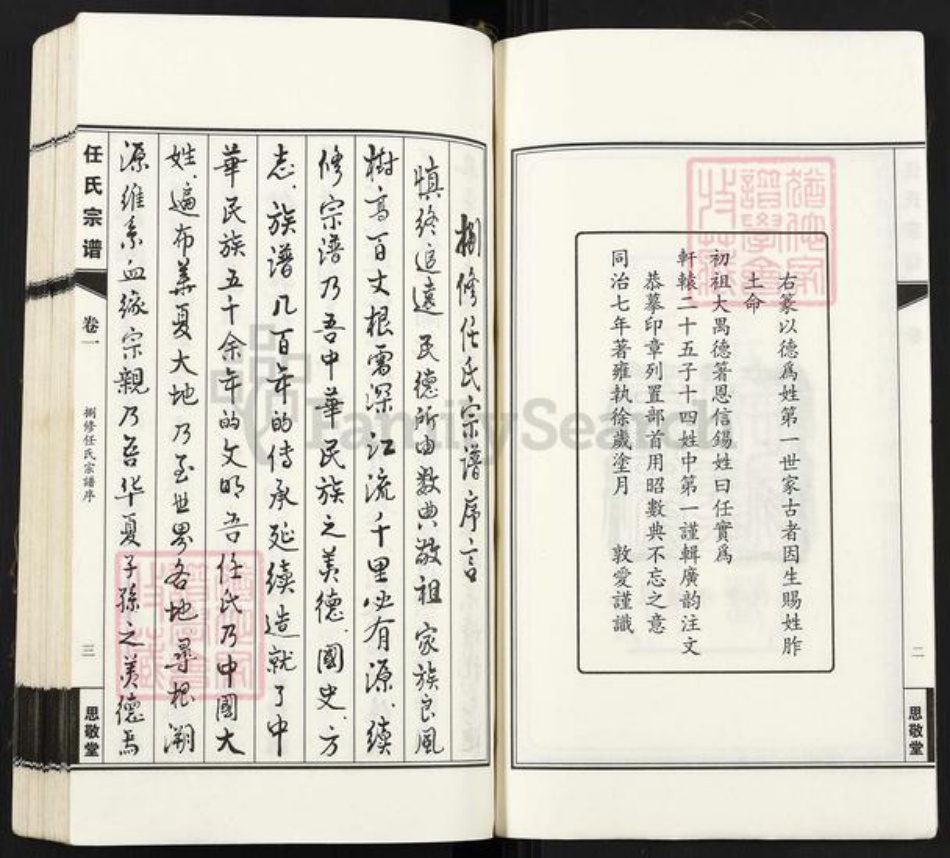 右篆以德爲姓第一世家古者因生賜姓胙
土命
初祖大禺德箸恩信錫姓曰任實爲
軒轅二十五子十四姓中第一謹輯廣韵注文
恭摹印章列置部首用昭數典不忘之意
同治七年著雍執徐歲塗月 敦愛謹識
二
思敬堂
捌修任氏宗譜序言
慎终追遠 民德所由数典敬祖 家族良風
樹高百丈根需深 江流千里必有源 续
修宗谱乃吾中華民族之美德 國史 方
志 族谱 几百年的传承延续造就了中
華民族五千余年的文明 吾任氏乃中國大
姓 遍布華夏大地 乃至世界各地 尋根溯
源维系血缘宗親乃吾华夏子孫之美德焉
任氏宗谱
卷一
捌修任氏宗譜序
三
思敬堂
FamilySearch